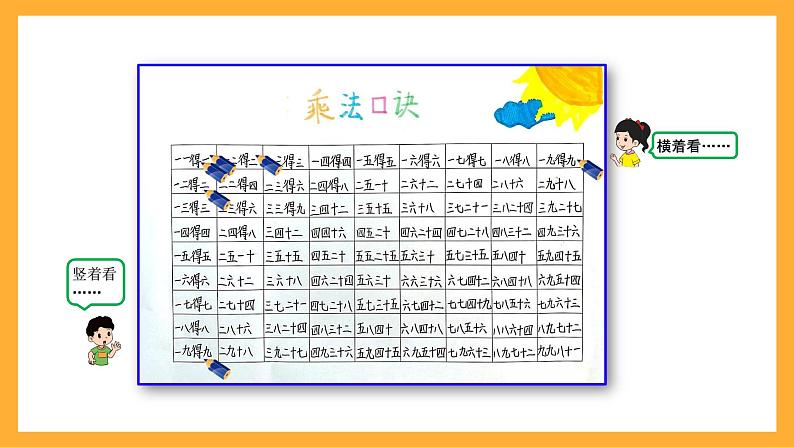 乘法口诀
横着看……
竖着看
……
一一得一 二得二 三得三 一四得四 一五得五 一六得六 一七得七 一八得八 一九得九
一二得二 二二得四 二三得六 二四得八 二五一十 二六十二 二七十四 二八十六 二九十八
一三得三 二三得六 三三得九 三四十二 三五十五 三六十八 三七二十一 三八二十四 三九二十七
一四得四 二四得八 三四十二 四四十六 四五二十 四六二十四 四七二十八 四八三十二 四九三十六
一五得五 二五一十 三五十五 四五二十 五五二十五 五六三十 五七三十五 五八四十 五九四十五
一六得六 二六十二 三六十八 四六二十四 五六三十 六六三十六 六七四十二 六八四十八 六九五十四
一七得七 二七十四 三七二十一 四七二十八 五七三十五 六七四十二 七七四十九 七八五十六 七九六十三
一八得八 二八十六 三八二十四 四八三十二 五八四十 六八四十八 七八五十六 八八六十四 八九七十二
一九得九 二九十八 三九二十七 四九三十六 五九四十五 六九五十四 七九六十三 八九七十二 九九八十一